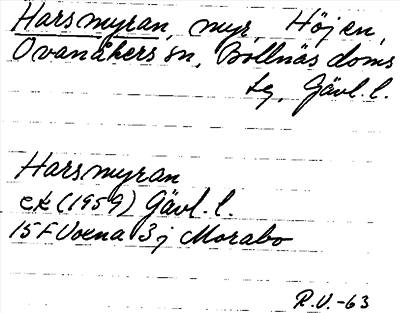 Harsmyran, myr, Höjen,
Ovanåkers sn, Bollnäs doms
tg, Gävl. l.
Harsmyran
ek (1959) Gävl. l.
15F Voxna 3j Morabo
R.V.-63